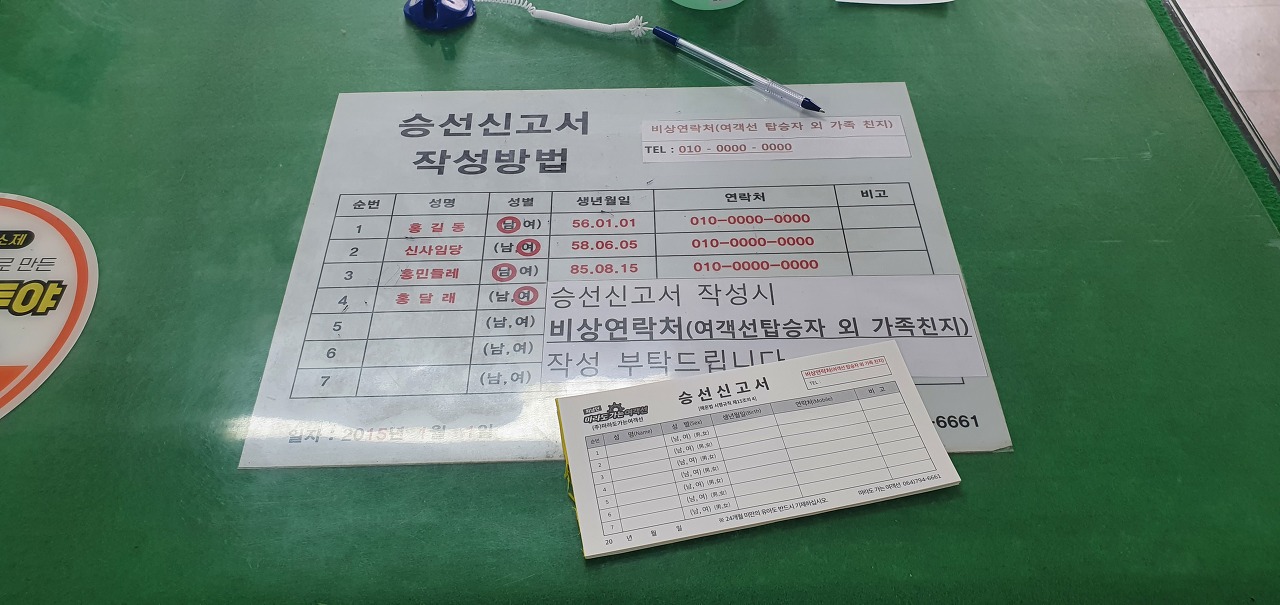 승선신고서
작성방법
비상연락처(여객선 탑승자 외 가족 친지)
TEL : 010 - 0000 - 0000
순번 성명 성별 생년월일 연락처 비고
1 홍길동 (남,여) 56.01.01 010-0000-0000
2 신사임당 (남,여) 58.06.05 010-0000-0000
3 홍민들레 (남,여) 85.08.15 010-0000-0000
4 홍달래 (남,여)
5 (남,여)
6 (남,여)
7 (남,여)
승선신고서 작성시
비상연락처(여객선탑승자 외 가족친지)
작성 부탁드립니다
일자 : 2015년
-6661
소제
로 만든
승선신고서
비상연락처(여객선 탑승자 외 가족 친지)
TEL
마라도가는여객선
(주)마라도가는여객선
순번 성 명(Name) 성 별(Sex) 생년월일(Birth) 연락처(Mobile) 비 고
1 (남, 여) (男,女)
2 (남, 여) (男,女)
3 (남, 여) (男,女)
4 (남, 여) (男,女)
5 (남, 여) (男,女)
6 (남, 여) (男,女)
7 (남, 여) (男,女)
20 년 월 일
※ 24개월 미만의 유아도 반드시 기재하십시오.
마라도 가는 여객선 064)794-6661